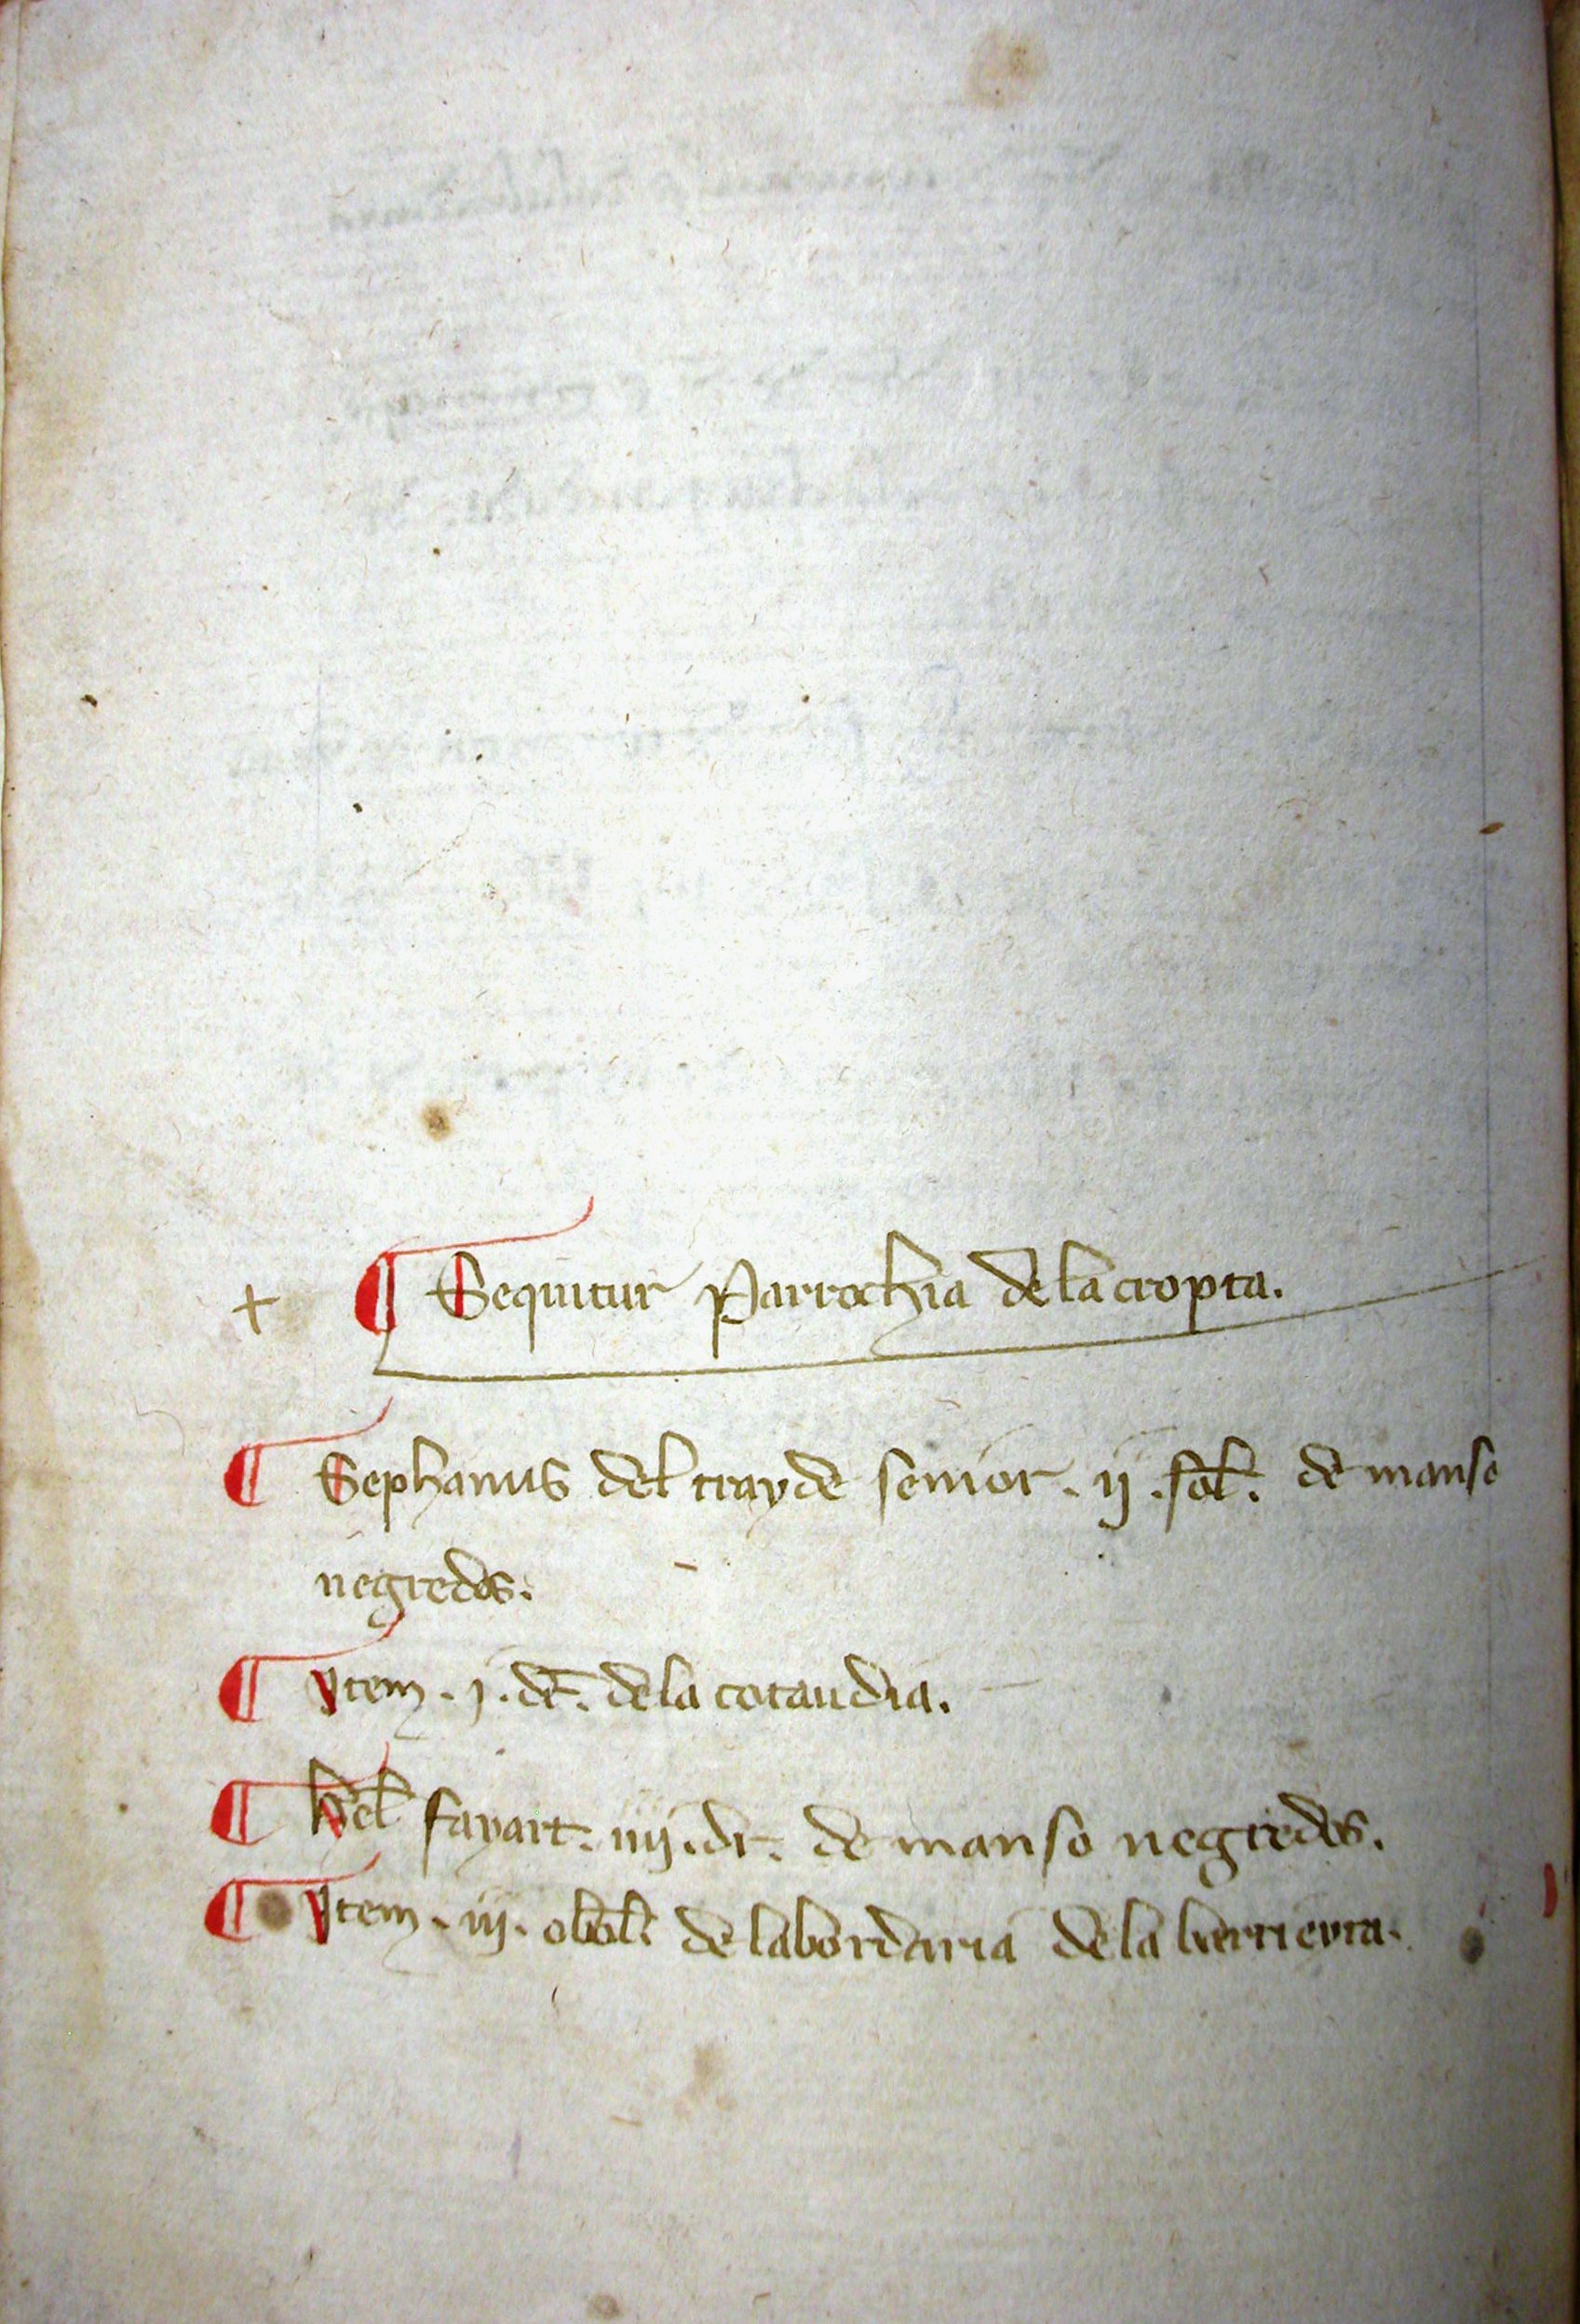 + ¶ Sequitur Parrochia de la cropta.
¶ Sephanus del trayde senior . ij . sol. de manso
negredos.
¶ ytem . j . dr. de la cotaudia.
¶ hel fayart . iiij . dr. de manso negredos.
¶ ytem . iij . obol de labordaria de la berrieyra.